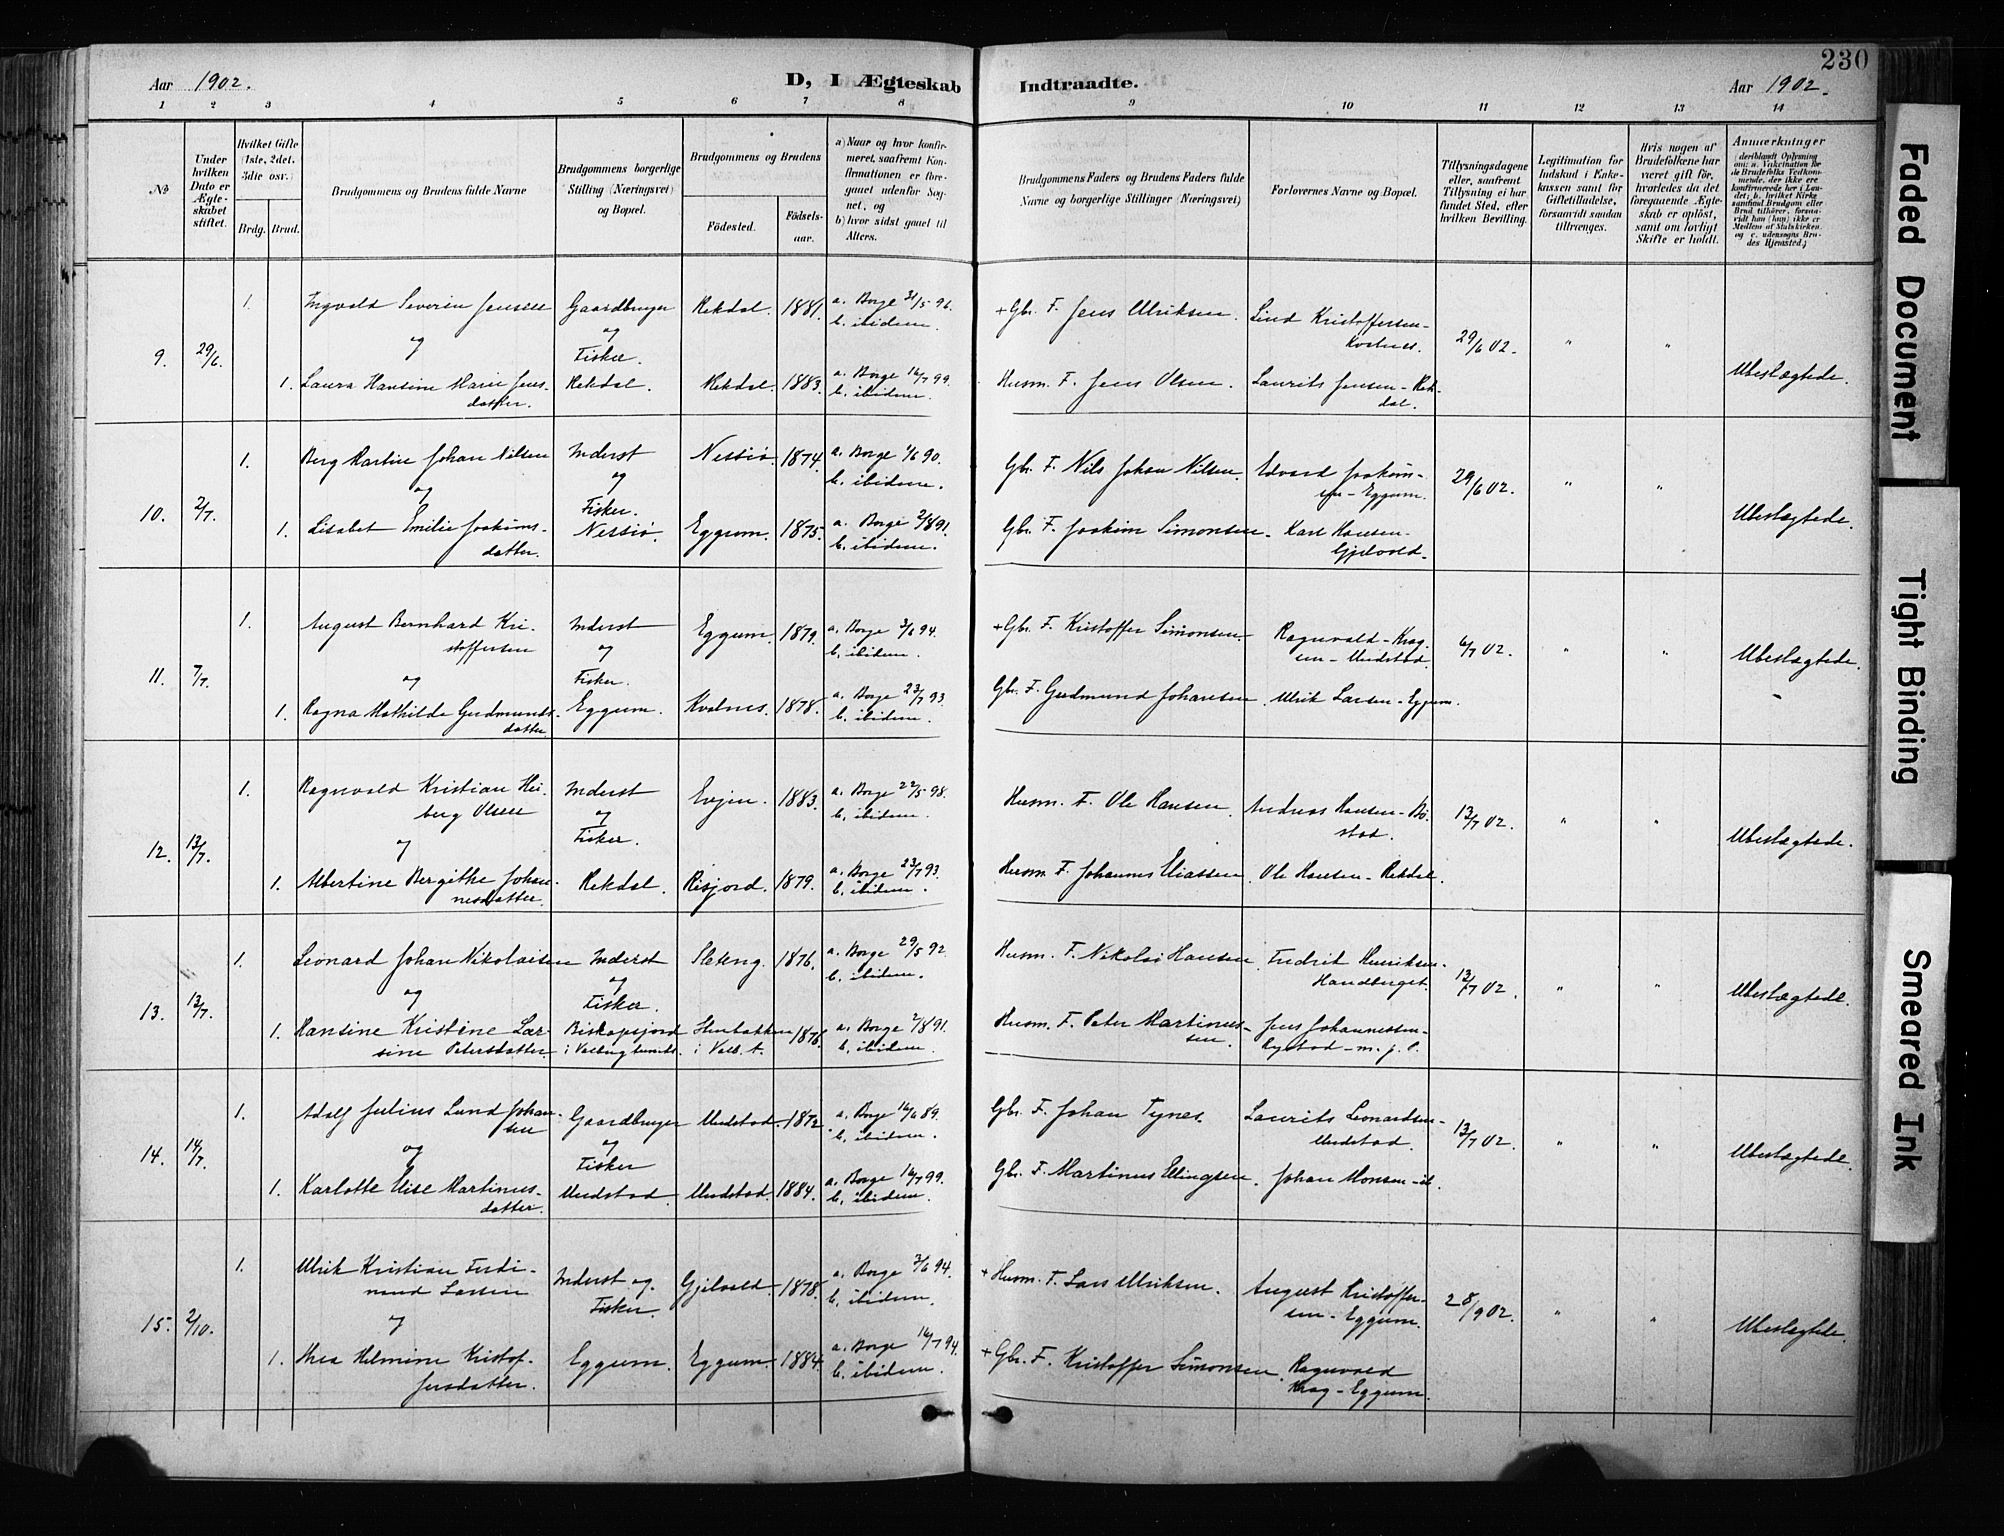 230
Aar 1902.
D, I Ægteskab Indtraadte.
Aar 1902.
1 2 3 4 5 6 7 8 9 10 11 12 13 14
No
Under hvilken Dato er Ægteskabet stiftet.
Hvilket Gifte (1ste, 2det, 3die osv.)
Brdg. Brud.
Brudgommens og Brudens fulde Navne
Brudgommens borgerlige Stilling (Næringsvei) og Bopæl.
Brudgommens og Brudens
Fødested. Fødselsaar.
a) Naar og hvor konfirmeret, saafremt Konfirmationen er foregaaet udenfor Sognet, og
b) hvor sidst gaaet til Alters.
Brudgommens Faders og Brudens Faders fulde Navne og borgerlige Stillinger (Næringsvei)
Forlovernes Navne og Bopæl.
Tillysningsdagene eller, saafremt Tillysning ei har fundet Sted, efter hvilken Bevilling.
Legitimation for Indskud i Enkekassen samt for Giftetilladelse, forsaavidt saadan tiltrænges.
Hvis nogen af Brudefolkene har været gift før, hvorledes da det foregaaende Ægteskab er opløst, samt om lovligt Skifte er holdt.
Anmærkninger
(deriblandt Oplysning om: a. Vakcination for de Brudefolks Vedkommende, der ikke ere konfirmerede her i Landet; b. hvilket Kirkesamfund Brudgom eller Brud tilhører, forsaavidt han (hun) ikke er Medlem af Statskirken, og c. udensogns Brudes Hjemsted.)
1. Ingvald Severin Jensen Gaardbruger Rekdal. 1881. a. Borge 31/5 96. + Gbr. F. Jens Ulriksen. Lind Kristoffersen-
b. ibidem. Kvalnes.
9. 29/6. og og Fisker. 29/6 02. " " Ubeslægtede.
1. Laura Hansine Marie Jens- Rekdal. Rekdal. 1883. a. Borge 16/7 99. Husm. F. Jens Olsen. Laurits Jensen - Rek-
datter. b. ibidem. dal.
1. Berg Martin Johan Nilsen Inderst Nessiø. 1874. a. Borge 1/6 90. Gbr. F. Nils Johan Nilsen. Edvard Joakim-
og og b. ibidem. sen - Eggum. 29/6 02. " "
10. 2/7. Fisker. Ubeslægtede.
1. Lisabet Emilie Joakims- Nessiø. Eggum. 1875. a. Borge 2/8 91. Gbr. F. Joakim Simonsen. Karl Hansen-
datter. b. ibidem. Gjelvold.
1. August Bernhard Kri- Inderst Eggum. 1879. a. Borge 3/6 94. + Gbr. F. Kristoffer Simonsen. Ragnvald Krag-
stoffersen og b. ibidem. sen - Undstad. 6/7 02. " "
11. 7/7. og Fisker. Ubeslægtede.
1. Ragna Mathilde Gudmunds- Eggum. Kvalnes. 1878. a. Borge 23/7 93. Gbr. F. Gudmund Johansen. Ulrik Larsen - Eggum.
datter b. ibidem.
1. Ragnvald Kristian Hei- Inderst Evjen. 1883. a. Borge 22/5 98. Husm. F. Ole Hansen. Andreas Hansen - Bø-
berg Olsen og b. ibidem. stad. 13/7 02. " "
12. 13/7. og Fisker. Ubeslægtede.
1. Albertine Bergitha Johan- Rekdal. Risjord. 1879. a. Borge 23/7 93. Husm. F. Johannes Eliassen. Ole Hansen - Rekdal.
nesdatter. b. ibidem.
1. Leonard Johan Nikolaisen Inderst Slteng. 1876. a. Borge 29/5 92. Husm. F. Nikolai Hansen. Fredrik Henriksen-
og og b. ibidem. Handberget. 13/7 02. " "
13. 13/7. Fisker. Ubeslægtede.
1. Hansine Kristine Lar- Biskopsjord 1876. a. Borge 2/8 91. Husm. F. Peter Martinus- Jens Johannessen-
sine Petersdatter i Valb. A. b. ibidem. sen. Rystad - m. p. P.
1. Adolf Julius Lund Johan- Gaardbruger Unstad. 1872. a. Borge 16/6 89. Gbr. F. Johan Tynes. Laurits Leonardsen-
sen og b. ibidem. Undstad. 13/7 02. " "
14. 14/7. og Fisker Ubeslægtede.
1. Karlotte Elise Martinus- Undstad Undstad. 1884. a. Borge 16/7 99. Gbr. F. Martinus Ellingsen. Johan Monsen - ib.
datter. b. ibidem.
1. Ulrik Kristian Ferdi- Inderst og Gjelvold. 1878. a. Borge 3/6 94. + Husm. F. Lars Ulriksen. August Kristoffer-
nand Larsen Fisker. b. ibidem. sen - Eggum. 28/9 02. " "
15. 2/10. og Ubeslægtede.
1. Thea Helmine Kristof- Eggum. Eggum. 1884. a. Borge 16/7 94. + Gbr. F. Kristoffer Simonsen. Ragnvald
fersdatter. b. ibidem. Krag - Eggum.
Faded Document
Tight Binding
Smeared Ink